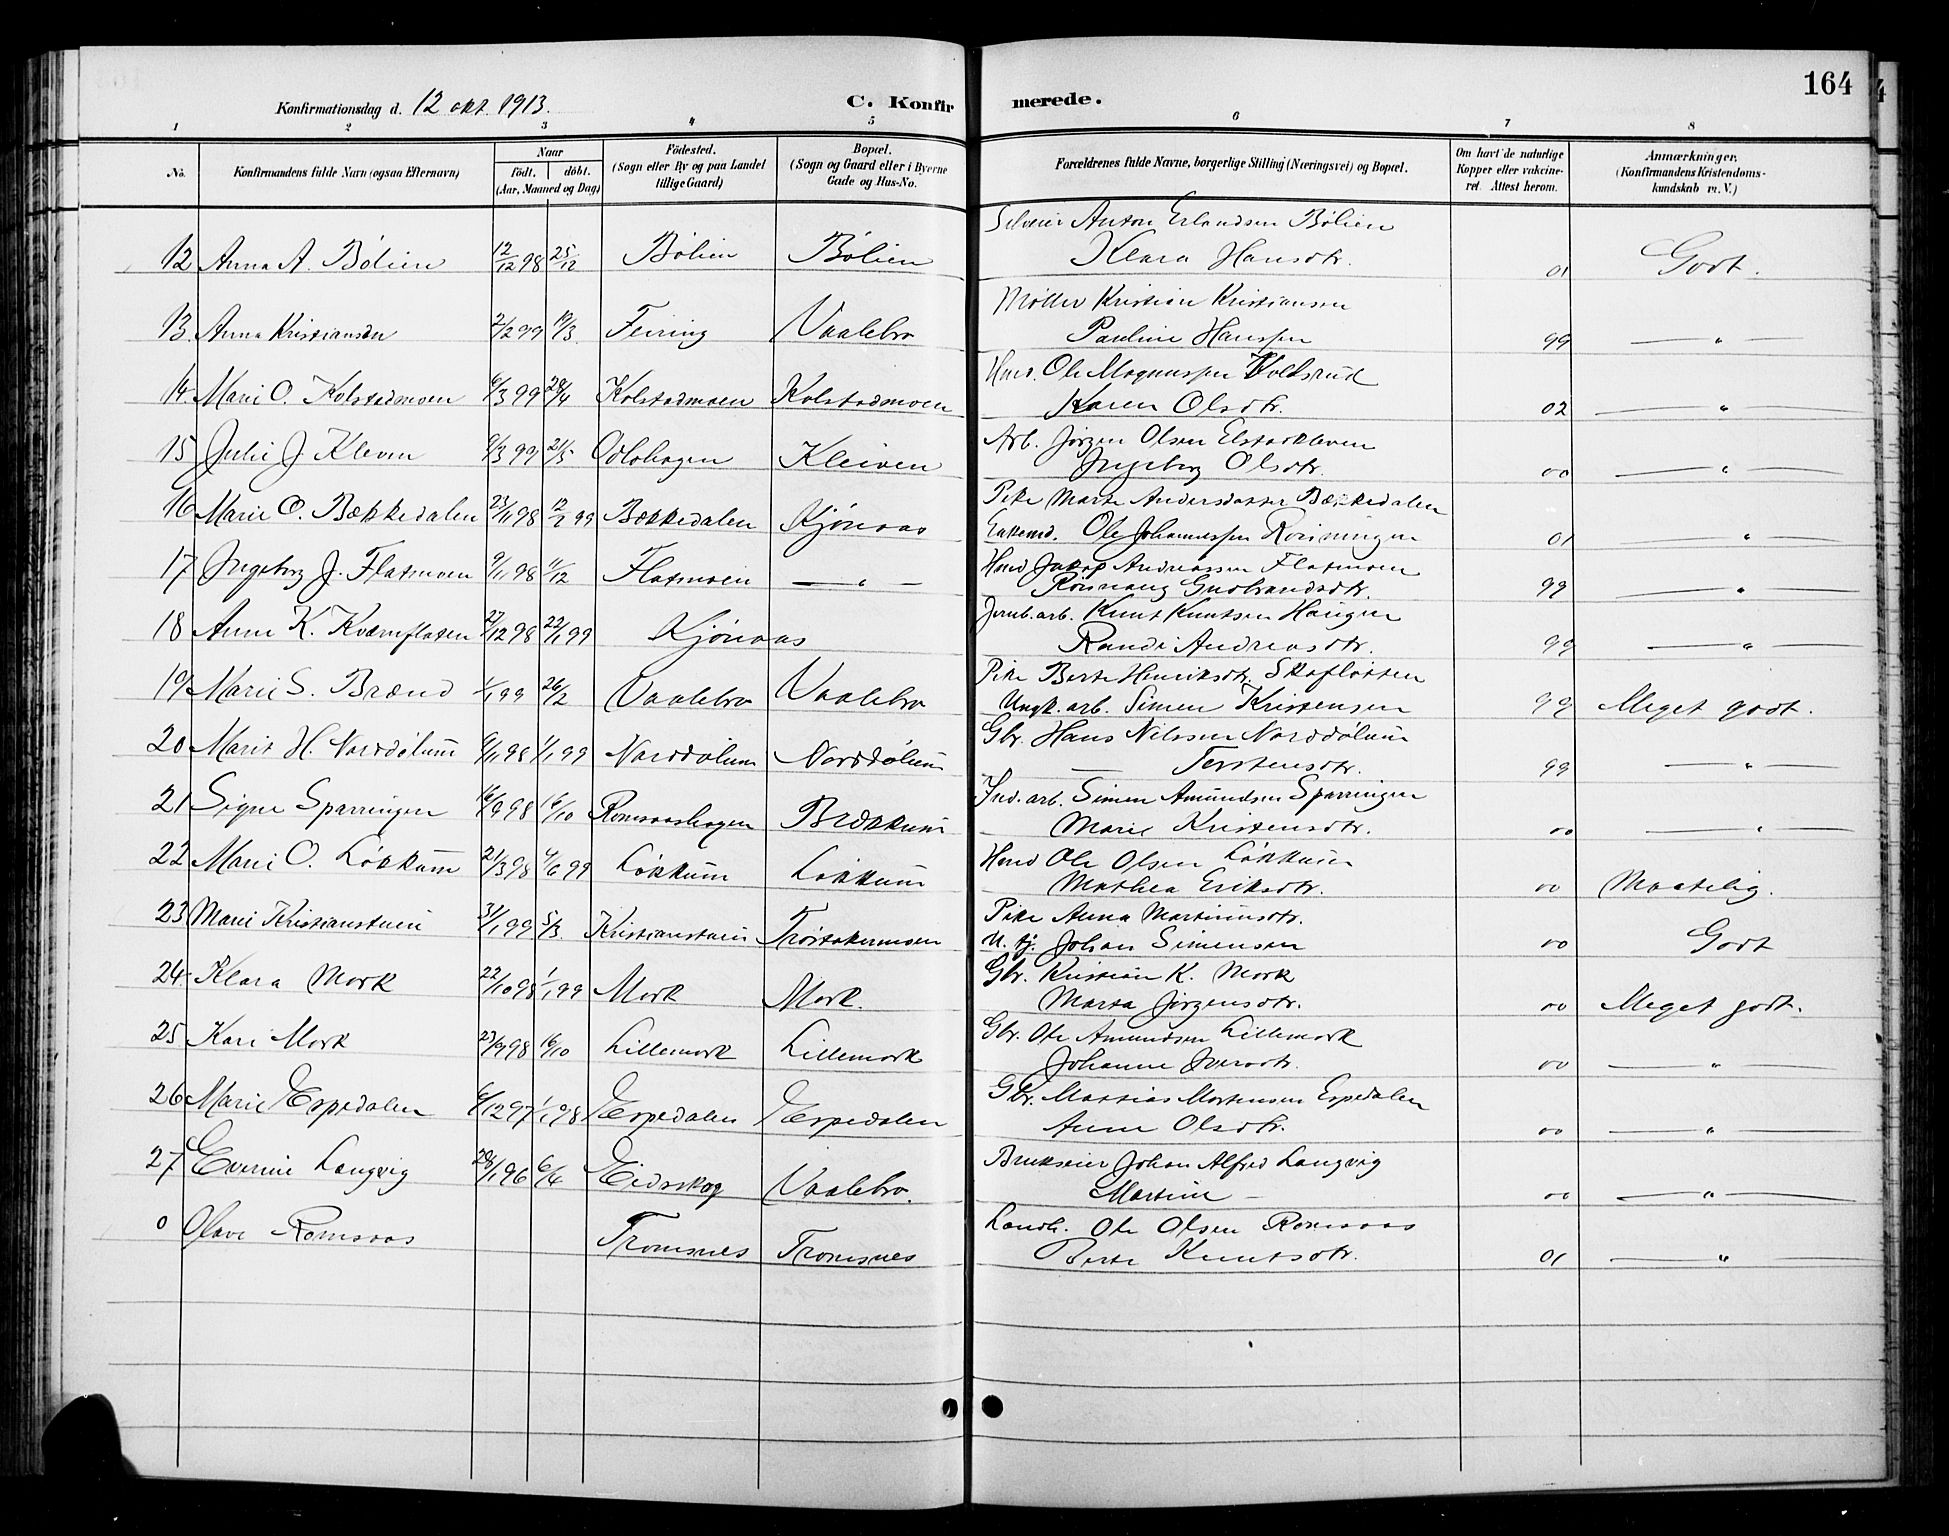 164
Konfirmationsdag d. 12 okt. 1913.
C. Konfirmerede.
1 2 3 4 5 6 7 8
No. Konfirmandens fulde Navn (ogsaa Efternavn)
Naar
födt. döbt.
(Aar, Maaned og Dag)
Födested.
(Sogn eller By og paa Landet tillige Gaard)
Bopæl.
(Sogn og Gaard eller i Byerne Gade og Hus-No.
Forældrenes fulde Navne, borgerlige Stilling (Næringsvei) og Bopæl.
Om havt de naturlige Kopper eller vakcineret. Attest herom.
Anmærkninger,
(Konfirmandens Kristendomskundskab m. V.)
12 Anna A. Bölien 12/12 98 25/12 Bölien Bölien Selveier Anton Erlandsen Bölien
Klara Hansdtr. 01 Godt.
13. Anna Kristiansen 2/2 99 19/3. Feiring Vaalebro Möller Kristian Kristiansen
Pauline Hanssen 99 — " —
14. Marie O. Kolstadmoen 6/3 99 Kolstadmoen Kolstadmoen Ole Magnussen
Karen Olsdtr. 02 — " —
15 Julie J. Kleven 9/3 99 21/5 Odlohagen Kleiven Arb. Jörgen Olsen
Ingeborg Olsdtr. 00 — " —
16 Marie O. Bækkedalen 23/11 98 12/2 99 Bækkedalen Kjönaas Pike Marte Andersdatter Bækkedalen
Enkemd. Ole Johannessen 01 "
17 Ingeborg J. Flatmoen 9/11 98 11/12 Flatmoen — " — Jakop Andreassen Flatmoen
Rönnaug Gudbrandsdtr. 99 — " —
18 Anne K. Kværnflaten 27/12 98 22/1 99 Kjönaas Jernb.arb. Knut Knutsen Haugen
Randi Andreasdtr. 99 — " —
19 Marie S. Brænd 1/1 99 26/2 Vaalebro Vaalebro Pike Berte Henriksdtr. Skaflötten
Ungk. arb. Simen Kristensen 99 Meget godt.
20 Marit H. Norddölum 9/11 98 1/1 99 Norddölum Norddölum Gbr. Hans Nilssen Norddölum
— Torstensdtr. 99 — " —
21 Signe Sparringen 16/9 98 16/10 Romsaashagen Brækkum Ind. arb. Simen Amundsen Sparringen
Marie Kristensdtr. 00 — " —
22 Marie O. Lökkum 21/3 98 4/6 99 Lökkum Lökkum Ole Olsen Lökkum
Mathea Eriksdtr. 00 Maatelig.
23 Marie Kristianstuen 31/1 99 5/3. Kristianstuen Pike Anna Martinusdtr.
U. tj. Johan Simensen 00 Godt
24. Klara Mork 22/10 98 1/1 99 Mork Mork. Gbr. Kristian K. Mork
Marta Jörgensdtr. 00 Meget godt.
25. Kari Mork 23/9 98 16/10 Lillemork Lillemork Gbr. Ole Amundsen Lillemork
Johanne Iversdtr. 00 — " —
26 Marie Espedalen 6/12 97 1/1 98 Espedalen Espedalen Gbr. Mattias Mortensen Espedalen
Anne Olsdtr. 00 — " —
27 Evenine Langvig 28/1 96 6/4 Eidsskog Vaalebro. Brukseier Johan Alfred Langvig
Martine — 00 — " —
0 Olave Romsaas Tromsnes Tromsnes Landh. Ole Olsen Romsaas
Berte Knutsdtr. 01 "